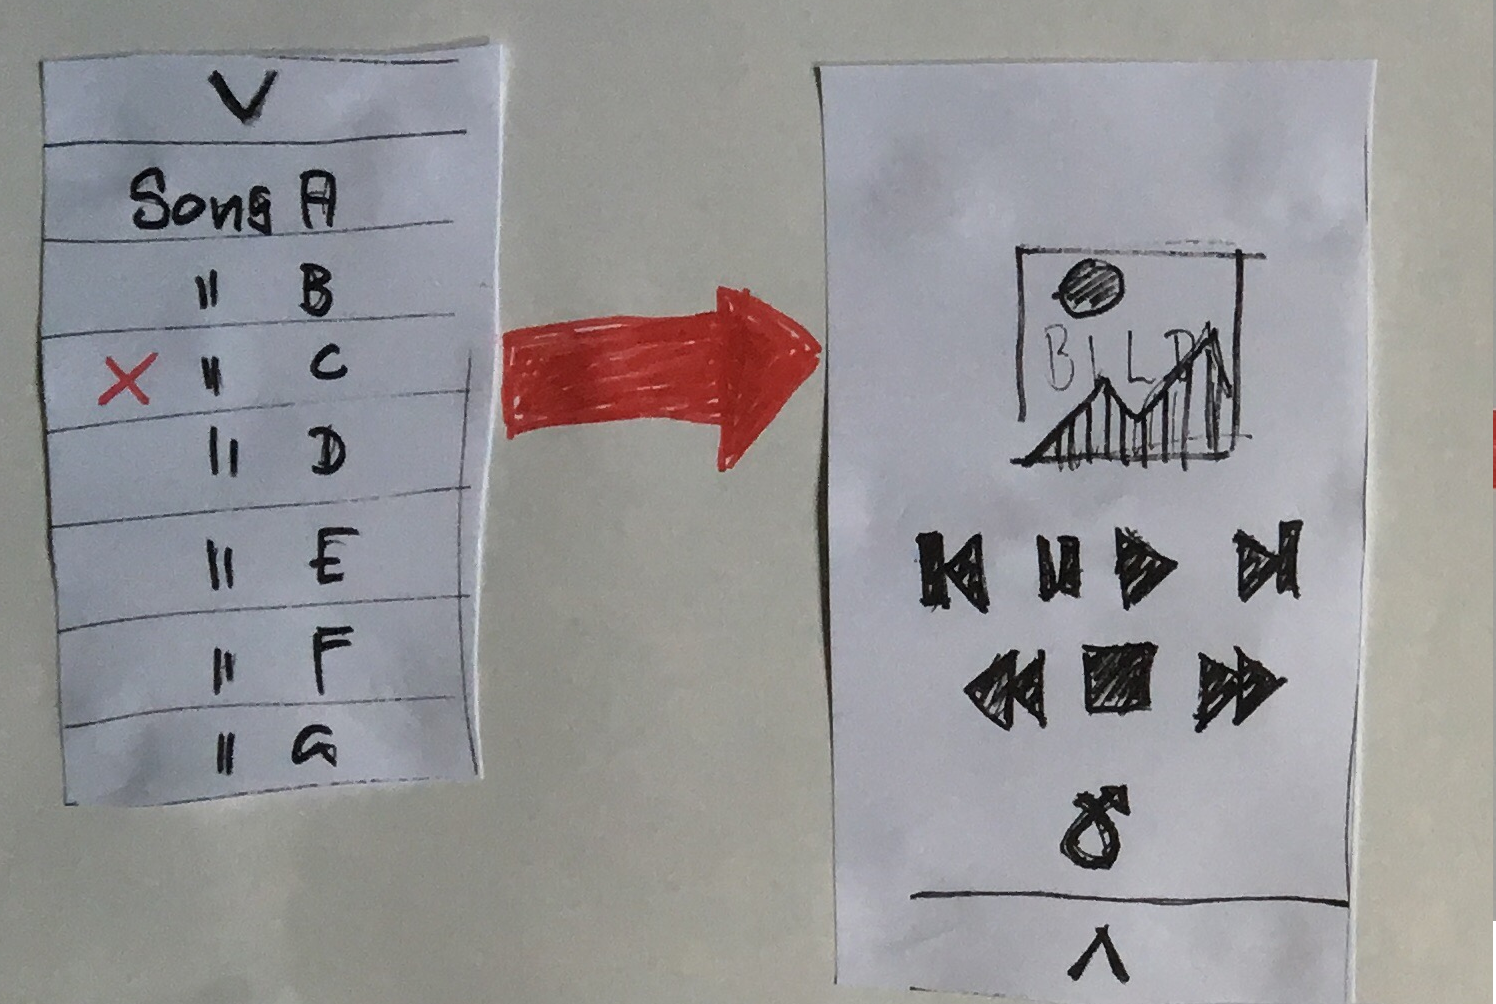 Song A
" B
" C
" D
" E
" F
" G
BILD